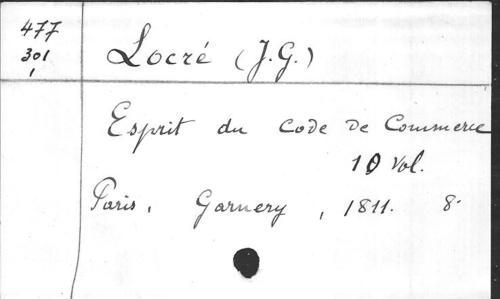 477
301
Locré (J.G.)
Esprit du Code de Commerce
10 Vol.
Paris, Garnery, 1811. 8.